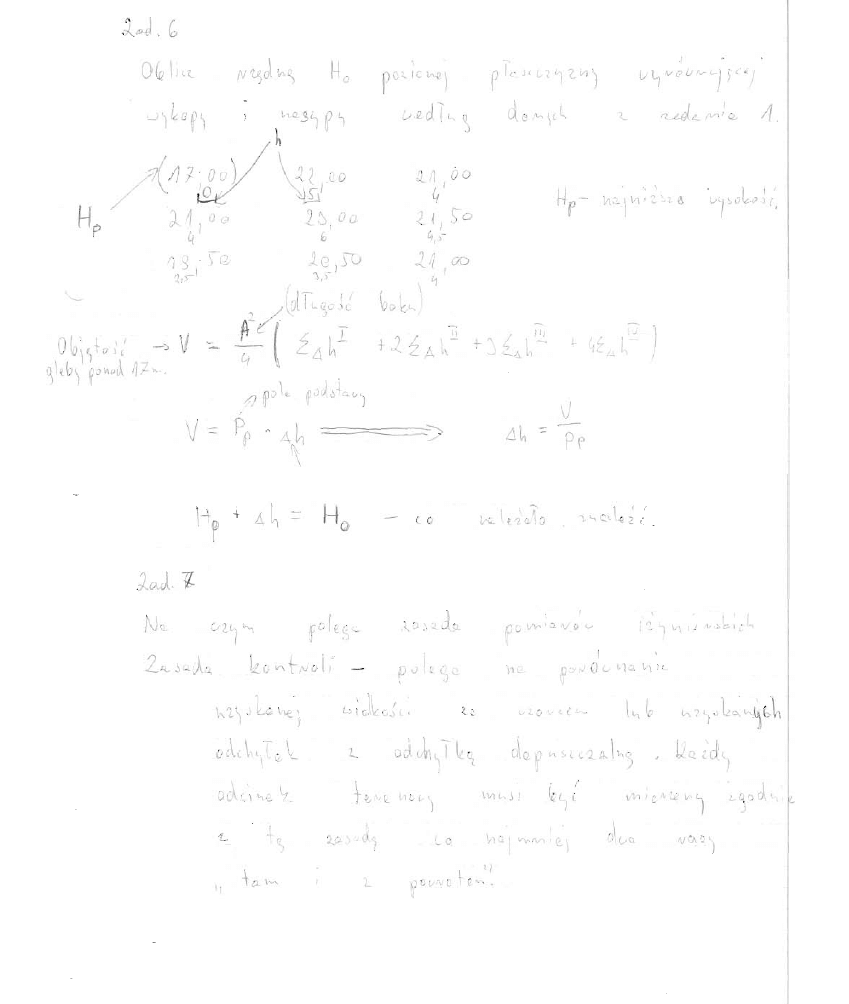 Zad. 6
Oblicz rzędną H₀ poziomej płaszczyzny wyrównującej
wykopy i nasypy według danych z zadania 1.
h
(17,00) 22,00 21,00
0 5 4
Hp 21,00 23,00 21,50
4 6 4,5
20,50 21,00
2,5 3,5 4
Hp - najniższa wysokość.
(długość boku)
Objętość → V = A²/4 ( ΣΔh^I + 2ΣΔh^II + 3ΣΔh^III + 4ΣΔh^IV )
gleby ponad 17m.
pole podstawy
V = Pp · Δh ⟹ Δh = V/Pp
Hp + Δh = H₀ - co należało znaleźć.
Zad. 7
Na czym polega zasada pomiarów
Zasada kontroli - polega na porównanie
uzyskanej wielkości ze wzorcem lub uzyskanych
odchyłek z odchyłką dopuszczalną. Każdy
odcinek terenowy musi być mierzony zgodnie
z tą zasadą co najmniej dwa razy
„tam i z powrotem".